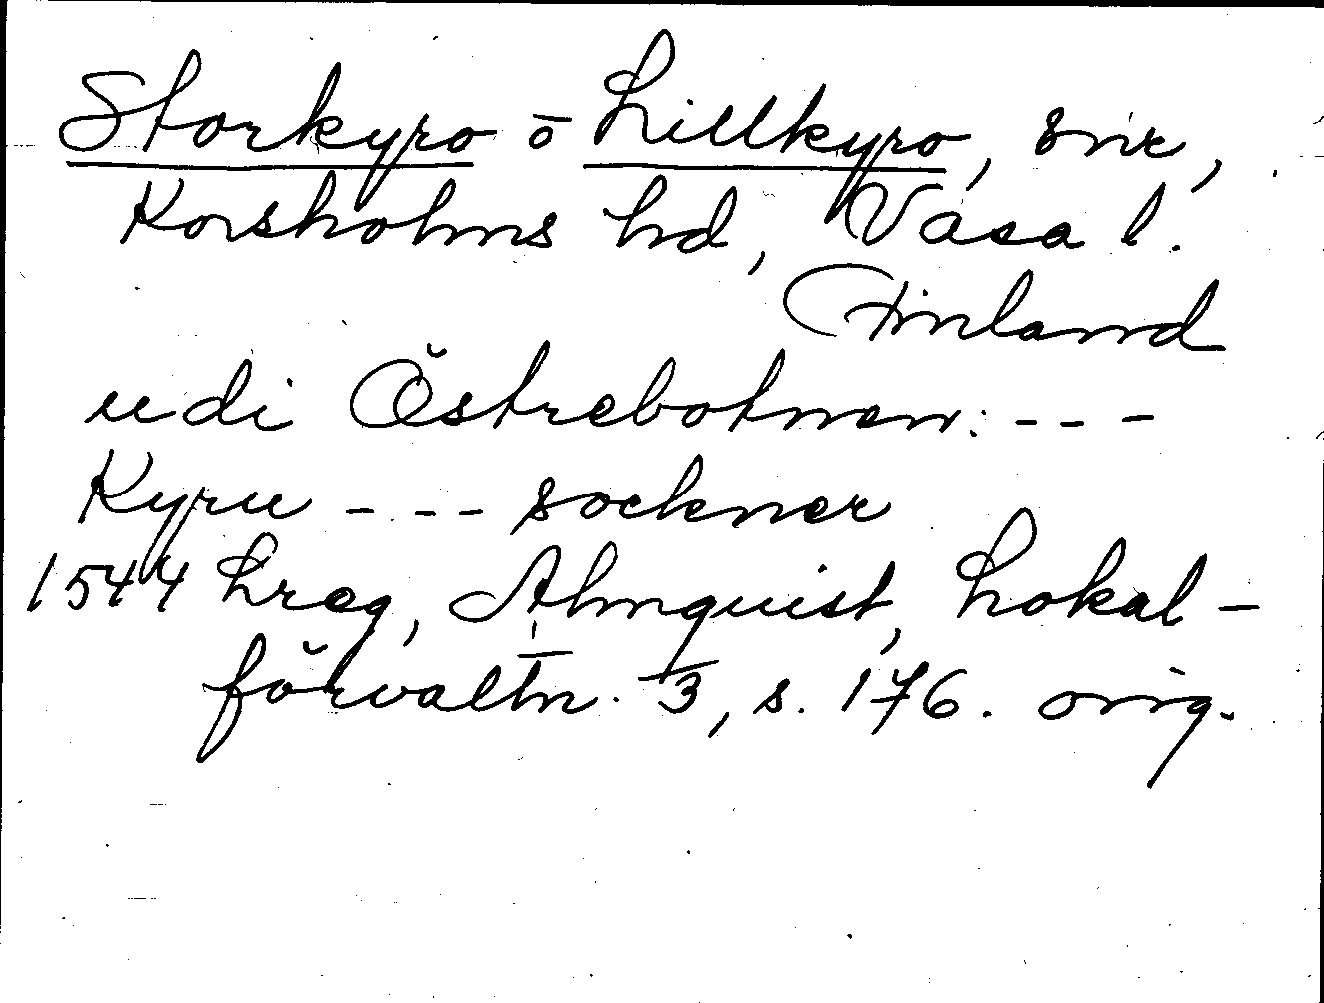 Storkyro o Lillkyro, snr,
Korsholms hd, Vasa l.
Finland
udi Östrebotnen: ---
Kyru ---- sockner
1544 Lreg, Almquist, Lokal-
förvaltn. 3, s. 176. orig.